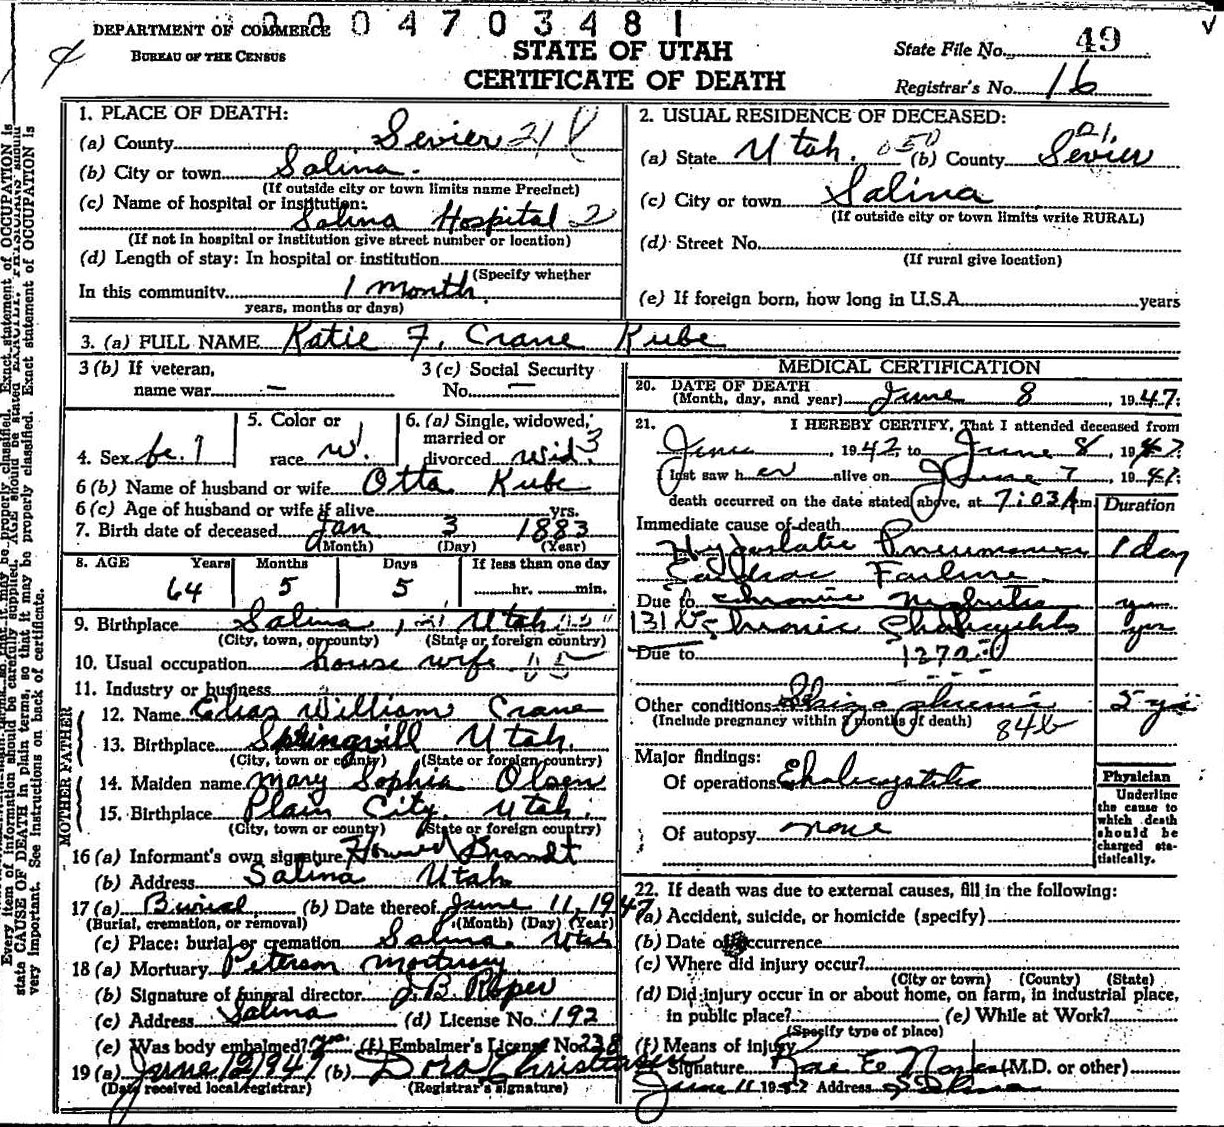 0004703481
DEPARTMENT OF COMMERCE
BUREAU OF THE CENSUS
STATE OF UTAH
CERTIFICATE OF DEATH
State File No. 49
Registrar's No. 16
1. PLACE OF DEATH:
(a) County Sevier
(b) City or town Salina.
(If outside city or town limits name Precinct)
(c) Name of hospital or institution:
Salina Hospital 2
(If not in hospital or institution give street number or location)
(d) Length of stay: In hospital or institution
(Specify whether
In this community 1 month
years, months or days)
2. USUAL RESIDENCE OF DECEASED:
(a) State Utah. 050 (b) County Sevier 21
(c) City or town Salina
(If outside city or town limits write RURAL)
(d) Street No.
(If rural give location)
(e) If foreign born, how long in U.S.A. years
3. (a) FULL NAME Katie F. Crane Kube
3 (b) If veteran,
name war —
3 (c) Social Security
No. —
4. Sex fe. 1
5. Color or
race W.
6. (a) Single, widowed,
married or
divorced wid. 3
6 (b) Name of husband or wife Otta Kube
6 (c) Age of husband or wife if alive yrs.
7. Birth date of deceased Jan 3 1883
(Month) (Day) (Year)
8. AGE Years Months Days If less than one day
64 5 5 hr. min.
9. Birthplace Salina, Utah
(City, town, or county) (State or foreign country)
10. Usual occupation house wife
11. Industry or business
FATHER
12. Name Elias William Crane
13. Birthplace Springvill Utah.
(City, town or county) (State or foreign country)
MOTHER
14. Maiden name Mary Sophia Olsen
15. Birthplace Plain City, Utah.
(City, town or county) (State or foreign country)
16 (a) Informant's own signature Howard Brandt
(b) Address Salina Utah
17 (a) Burial (b) Date thereof June 11, 1947
(Burial, cremation, or removal) (Month) (Day) (Year)
(c) Place: burial or cremation Salina. Utah
18 (a) Mortuary Peterson Mortuary
(b) Signature of funeral director J. B. Roper
(c) Address Salina (d) License No. 192
(e) Was body embalmed? yes (f) Embalmer's License No. 238
19 (a) June 12 1947 (b) Dora Christensen
(Date received local registrar) (Registrar's signature)
MEDICAL CERTIFICATION
20. DATE OF DEATH
(Month, day, and year) June 8, 1947.
21. I HEREBY CERTIFY, That I attended deceased from
June, 1942 to June 8, 1947
I last saw her alive on June 7, 1947
death occurred on the date stated above, at 7:03 A.m.
Duration
Immediate cause of death
Hypostatic Pneumonia 1 day
Cardiac Failure
Due to chronic nephritis yrs
131b Chronic Cholecystitis yrs
Due to 127a
Other conditions Schizophrenia 5 yrs
(Include pregnancy within 3 months of death) 84b
Major findings:
Of operations Cholecystitis
Of autopsy none
Physician
Underline
the cause to
which death
should be
charged sta-
tistically.
22. If death was due to external causes, fill in the following:
(a) Accident, suicide, or homicide (specify)
(b) Date of occurrence
(c) Where did injury occur?
(City or town) (County) (State)
(d) Did injury occur in or about home, on farm, in industrial place,
in public place? (e) While at Work?
(Specify type of place)
(f) Means of injury
Signature Rae E. (M.D. or other)
June 11 19 Address Salina